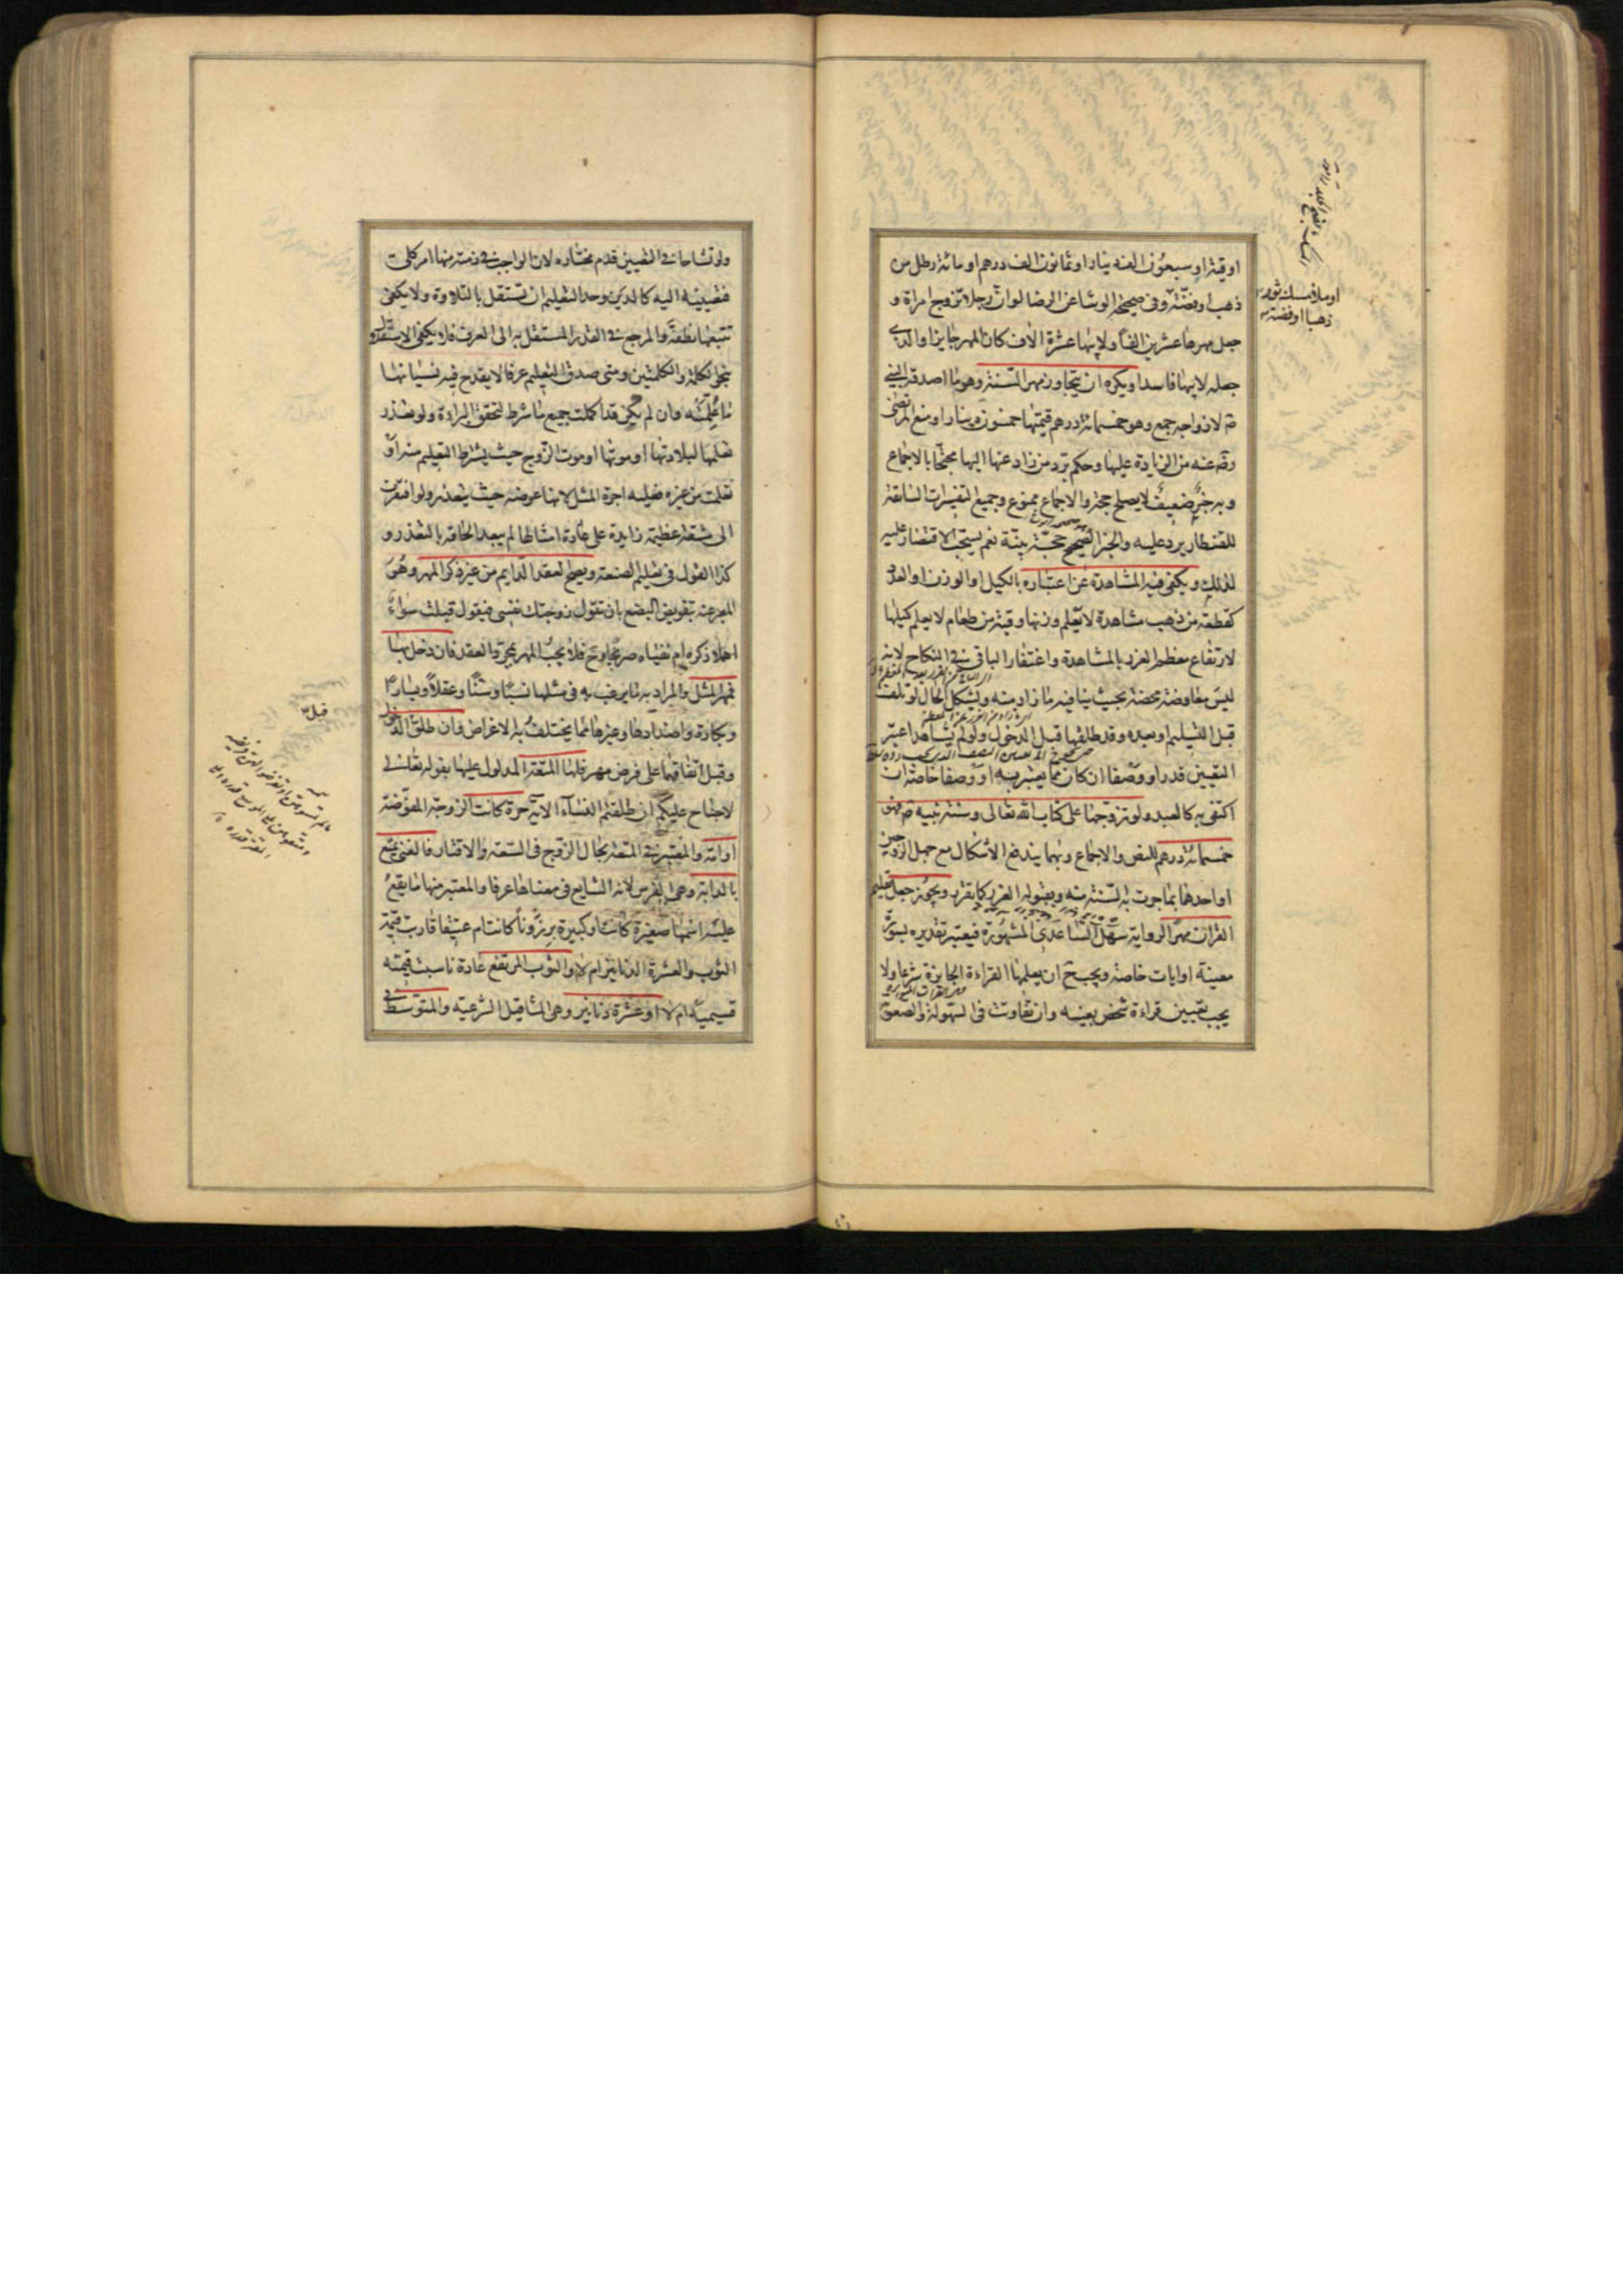 اوقية او سبعون الف دينار او ثمانون الف درهم او مائة رطل من
ذهب او فضة وفي صحيحة الوشا عن الرضا لو ان رجلا تزوج امراة و
جعل مهرها عشرين الفا ولابيها عشرة الاف كان المهر جايزا والذى
جعله لابيها فاسدا ويكره ان يتجاوز مهر السنة وهو ما اصدقه النبي
ص لازواجه جمع وهو خمسمائة درهم قيمتها خمسون دينارا ومنع المرتضى
رضه عنه من الزيادة عليها وحكم برد من زاد عنها اليها محتجا بالاجماع
وبه خبر ضعيف لا يصلح حجة والاجماع ممنوع وجميع التفسيرات السابقة
للقنطار يرد عليه والخبر الصحيح حجة بينة نعم يستحب الاقتصار عليه
لذلك ويكفى فيه المشاهدة عن اعتباره بالكيل او الوزن او العدد
كقطعة من ذهب مشاهدة لا يعلم وزنها وقبة من طعام لا يعلم كيلها
لارتفاع معظم الغرر بالمشاهدة واغتفار الباقي في النكاح لانه
ليس معاوضة محضة بحيث ينافيه ما زاد منه ويشكل الحال لو تلف
قبل التسليم او بعده وقد طلقها قبل الدخول ولو لم يشاهد اعتبر
التعيين قدرا ووصفا ان كان مما يعتبر به او وصفا خاصة ان
اكتفى به كالعبد ولو تزوجها على كتاب الله تعالى وسنة نبيه ص فهو
خمسمائة درهم للنص والاجماع وبهما يندفع الاشكال مع جهل الزوجين
او احدهما بما جرت به السنة منه وبقبوله الغرر كما تقرر ويجوز جعل تعليم
القران مهرا لرواية سهل الساعدى المشهورة فيعتبر تقديره بسورة
معينة او ايات خاصة ويجب ح ان يعلمها القراءة الجايزة شرعا ولا
يجب تعيين قراءة شخص بعينه وان تفاوتت في السهولة والصعوبة
او ملا مسك ثور
ذهبا او فضة
ولو تشاحا في التعيين قدم مختاره لان الواجب في ذمته منها امر كلي
فتعيينه اليه كالدين وحد التعليم ان تستقل بالتلاوة ولا يكفى
تتبعها نطقه والمرجع في القدر المستقل به الى العرف فلا يكفى الاستقلال
بنحو الكلمة والكلمتين ومتى صدق التعليم عرفا لا يقدح فيه نسيانها
ما علمته وان لم يكن قد اكملت جميع ما شرط لتحقق البراءة ولو تعذر
تعلمها لبلادتها او موتها او موت الزوج حيث يشترط التعليم منه او
تعلمت من غيره فعليه اجرة المثل لانها عوضه حيث يتعذر ولو افتقرت
الى مشقة عظيمة زايدة على عادة امثالها لم يبعد الحاقه بالتعذر و
كذا القول في تعليم الصنعة ويصح العقد الدايم من غير ذكر المهر وهو
المعبر عنه بتفويض البضع بان تقول زوجتك نفسي فيقول قبلت سواء
اهملا ذكره ام نفياه صريحا وح فلا يجب المهر بمجرد العقد فان دخل بها
فمهر المثل والمراد به ما يرغب به في مثلها نسبا وسنا وعقلا ويسارا
وبكارة واضدادها وغيرها مما يختلف به الاعراض وان طلق الدخول
وقبل اتفاقهما على فرض مهر فلها المتعة المدلول عليها بقوله تعالى
لا جناح عليكم ان طلقتم النساء الاية حرة كانت الزوجة المفوضة
او امة والمعتبر في المتعة بحال الزوج في السعة والاقتار فالغني يمتع
بالدابة وهي الفرس لانه الشايع في معناها عرفا والمعتبر منها ما يقع
عليه اسمها صغيرة كانت او كبيرة برذونا كانت ام عتيقا قاربت قيمة
الثوب والعشرة الدنانير ام لا او الثوب المرتفع عادة ناسبت قيمته
قسيميه ام لا او عشرة دنانير وهي المثاقيل الشرعية والمتوسط في
قبل